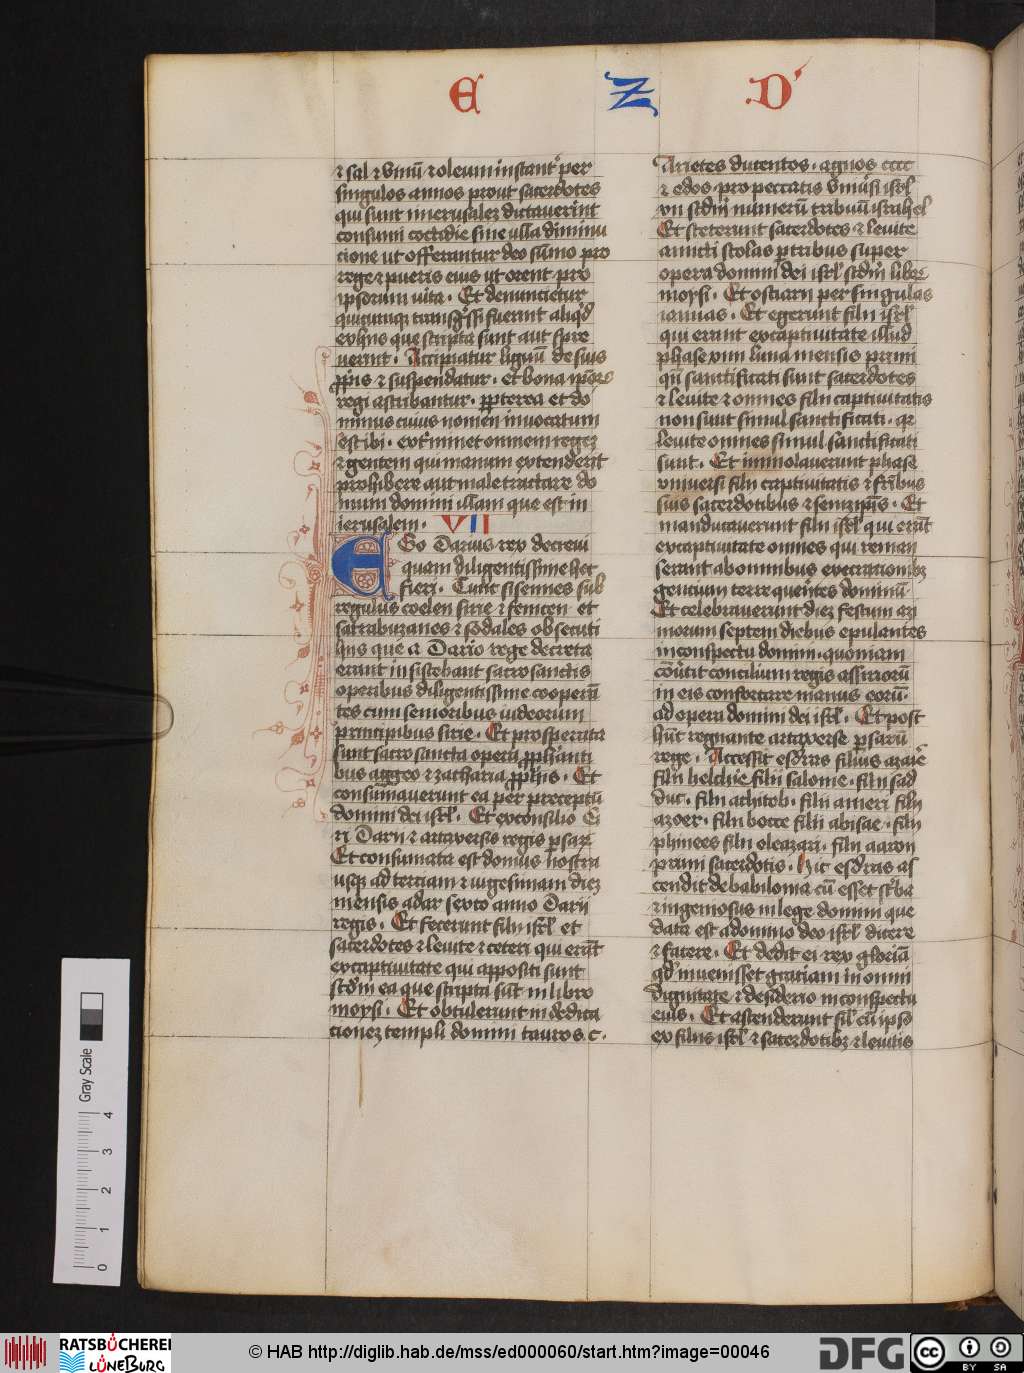 E Z D'
⁊ sal ⁊ vinū ⁊ oleum instant' per
singulos annos prout sacerdotes
qui sunt in ierusalez dictauerint
consumi cottidie sine vlla diminu
cione ut offerantur deo sūmo pro
rege ⁊ pueris eius ut orent pro
ipsorum uita . Et denuncietur
quicumqꝫ transg̃ssi fuerint aliq'd
ex hijs que scripta sunt aut spre
uerint . Accipiatur lignū de suis
pprijs ⁊ suspendatur . et bona ip̄orꝫ
regi ascribantur . ppterea et do
minus cuius nomen inuocatum
est ibi . ext'minet omnem regeꝫ
⁊ gentem qui manum extenderit
prohibere aut male tractare do
mum domini vllam que est in
ierusalem . VII
EGo Darius rex decreui
quam diligentissime hec
fieri . Tunc sisennes sub
regulus coelen sirie ⁊ femicen et
satrabuzanes ⁊ sodales obsecuti
hijs que a Dario rege decreta
erant insistebant sacrosanctis
operibus diligentissime cooperā
tes cum senioribus iudeorum
principibus sirie . Et prosperata
sunt sacrosancta opera pphanti
bus aggeo ⁊ zacharia pphijs . Et
consūmauerunt ea per preceptū
domini dei isrl' . Et ex consilio Ci
ri Darij ⁊ artaxersis regis psarꝫ
Et consumata est domus nostra
usqꝫ ad terciam ⁊ uigesimam dieꝫ
mensis adar sexto anno Darij
regis . Et fecerunt filij isrl' et
sacerdotes ⁊ leuite ⁊ ceteri qui erāt
ex captiuitate qui appositi sunt
scd'm ea que scripta sūt in libro
moysi . Et obtulerunt in dedica
cionez templi domini tauros . c .
Arietes ducentos . agnos cccc
⁊ edos . pro peccatis vniu'si isrl'
xii scd'm numerū tribuū israhel
Et steterunt sacerdotes ⁊ leuite
amicti stolas p tribus super
opera domini dei isrl' scd'm libꝝ
moysi . Et ostiarij per singulas
ianuas . Et egerunt filij isrl'
qui erant ex captiuitate illud
phase xiiii luna mensis primi
qn̄ sanctificati sunt sacerdotes
⁊ leuite ⁊ omnes filij captiuitatis
non sunt simul sanctificati . qꝛ
leuite omnes simul sanctificati
sunt . Et immolauerunt phase
vniuersi filij captiuitatis ⁊ fr̄ibus
suis sacerdotibus ⁊ semetip̄is . Et
manducauerunt filij isrl' qui erāt
ex captiuitate omnes qui reman
serant ab omnibus execrationibꝫ
gentium terre querentes dominū
Et celebrauerunt diez festum azi
morum septem diebus epulantes
in conspectu domini . quoniam
cōu'tit concilium regis assiriorū
in eis confortare manus eorū .
ad opera domini dei isrl' . Et post
hūc regnante artaxerse psarū
rege . Accessit esdras filius azarie
filij helchie filij salome . filij sad
duc . filij achitob . filij ameri filij
azoer . filij bocce filij abisae . filij
phinees filij oleazari . filij aaron
primi sacerdotis . hic esdras as
cendit de babilonia cū esset sc'ba
⁊ ingeniosus in lege domini que
data est a domino deo isrl' dicere
⁊ facere . Et dedit ei rex gloriā
qd' inuenisset gratiam in omni
dignitate ⁊ desiderio in conspectu
eius . Et ascenderunt sil' cū ipso
ex filiis isrl' ⁊ sacerdotibꝫ ⁊ leuitis
Gray Scale
0 1 2 3 4
RATSBÜCHEREI
LÜNEBURG
© HAB http://diglib.hab.de/mss/ed000060/start.htm?image=00046
DFG
cc BY SA